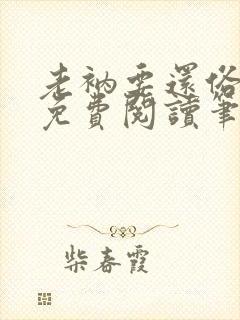 老衲要還俗
免費閱讀筆
柴春霞